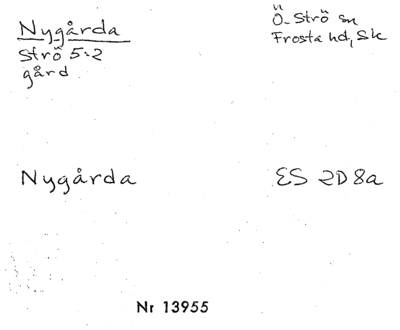 Nygårda
Strö 5:2
gård
Ö. Strö sn
Frosta hd, Sk
Nygårda
ES 2D8a
Nr 13955